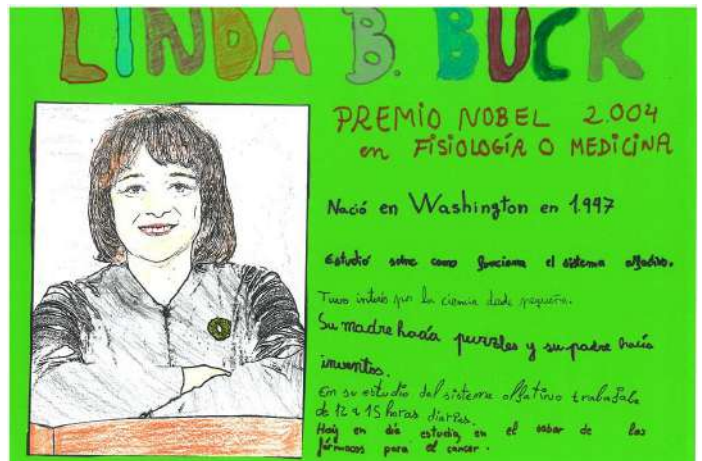 LINDA B. BUCK
PREMIO NOBEL 2.004
en FISIOLOGÍA O MEDICINA
Nació en Washington en 1.947
Estudió sobre como funciona el sistema olfativo.
Tuvo interés por la ciencia desde pequeña.
Su madre hacía puzzles y su padre hacía
inventos.
En su estudio del sistema olfativo trabajaba
de 12 a 15 horas diarias.
Hoy en día estudia en el sabor de los
fármacos para el cancer.